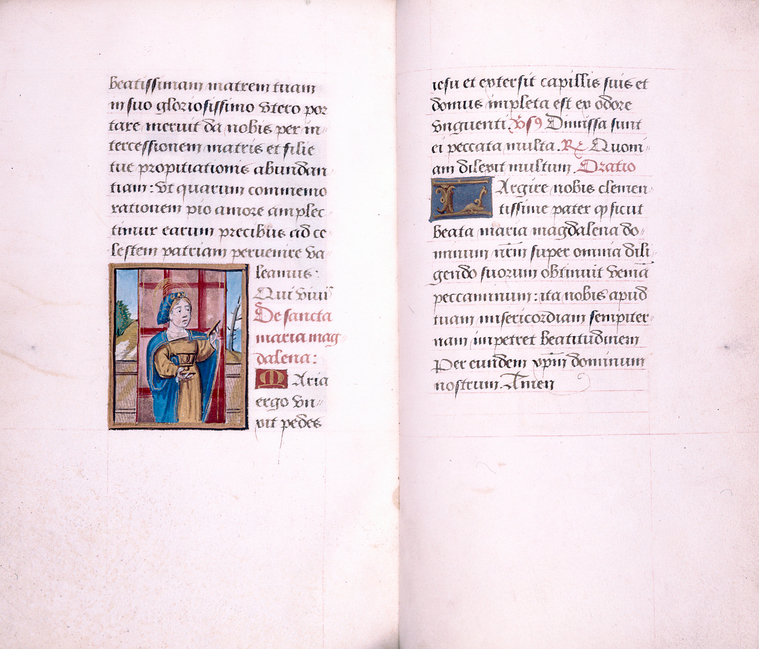 beatissimam matrem tuam
in suo gloriosissimo vtero por
tare meruit da nobis per in-
tercessionem matris et filie
tue propitiationis abundan
tiam: vt quarum commemo
rationem pio amore amplec
timur earum precibus ad ce
lestem patriam peruenire va
leamus.
Qui viuis
De sancta
maria mag
dalena:
Maria
ergo vn-
xit pedes
iesu et extersit capillis suis et
domus impleta est ex odore
vnguenti. Vs Dimissa sunt
ei peccata multa. R Quoni-
am dilexit multum. Oratio
Largire nobis clemen-
tissime pater q sicut
beata maria magdalena do-
minum nrm super omnia dili-
gendo suorum obtinuit veniā
peccaminum: ita nobis apud
tuam misericordiam sempiter-
nam impetret beatitudinem
Per eundem xpm dominum
nostrum. Amen